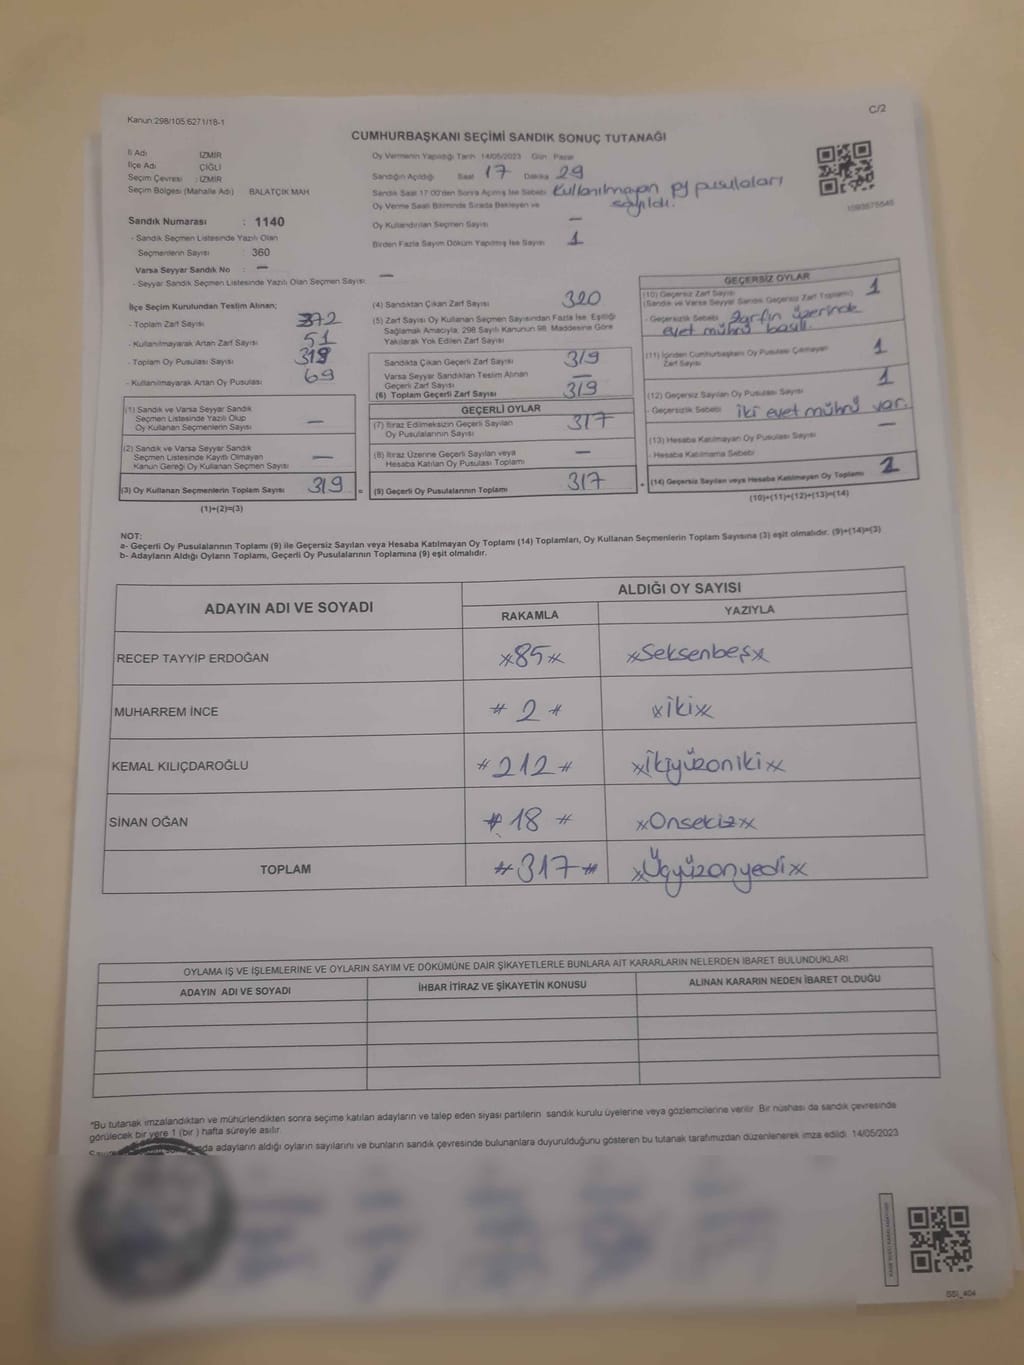 C/2
Kanun:298/105;6271/18-1
CUMHURBAŞKANI SEÇİMİ SANDIK SONUÇ TUTANAĞI
İl Adı İZMİR
İlçe Adı ÇİĞLİ
Seçim Çevresi : İZMİR
Seçim Bölgesi (Mahalle Adı) BALATÇIK MAH
Oy Vermenin Yapıldığı Tarih 14/05/2023 Gün Pazar
Sandığın Açıldığı Saat 17 Dakika 29
Sandık Saat 17:00'den Sonra Açılmış İse Sebebi Kullanılmayan oy pusulaları
sayıldı.
Oy Verme Saati Bitiminde Sırada Bekleyen ve
Oy Kullandırılan Seçmen Sayısı —
Birden Fazla Sayım Döküm Yapılmış İse Sayısı 1
Sandık Numarası : 1140
- Sandık Seçmen Listesinde Yazılı Olan
Seçmenlerin Sayısı : 360
Varsa Seyyar Sandık No : —
- Seyyar Sandık Seçmen Listesinde Yazılı Olan Seçmen Sayısı: —
İlçe Seçim Kurulundan Teslim Alınan;
- Toplam Zarf Sayısı 372
- Kullanılmayarak Artan Zarf Sayısı 51
- Toplam Oy Pusulası Sayısı
- Kullanılmayarak Artan Oy Pusulası 69
(1) Sandık ve Varsa Seyyar Sandık
Seçmen Listesinde Yazılı Olup
Oy Kullanan Seçmenlerin Sayısı —
(2) Sandık ve Varsa Seyyar Sandık
Seçmen Listesinde Kayıtlı Olmayan
Kanun Gereği Oy Kullanan Seçmen Sayısı —
(3) Oy Kullanan Seçmenlerin Toplam Sayısı 319 =
(1)+(2)=(3)
(4) Sandıktan Çıkan Zarf Sayısı 320
(5) Zarf Sayısı Oy Kullanan Seçmen Sayısından Fazla İse, Eşitliği
Sağlamak Amacıyla, 298 Sayılı Kanunun 98. Maddesine Göre
Yakılarak Yok Edilen Zarf Sayısı
Sandıkta Çıkan Geçerli Zarf Sayısı 319
Varsa Seyyar Sandıktan Teslim Alınan
Geçerli Zarf Sayısı —
(6) Toplam Geçerli Zarf Sayısı 319
GEÇERLİ OYLAR
(7) İtiraz Edilmeksizin Geçerli Sayılan
Oy Pusulalarının Sayısı 317
(8) İtiraz Üzerine Geçerli Sayılan veya
Hesaba Katılan Oy Pusulası Toplamı —
(9) Geçerli Oy Pusulalarının Toplamı 317 +
GEÇERSİZ OYLAR
(10) Geçersiz Zarf Sayısı
(Sandık ve Varsa Seyyar Sandık Geçersiz Zarf Toplamı) 1
- Geçersizlik Sebebi Zarfın üzerinde
evet mührü basılı.
(11) İçinden Cumhurbaşkanı Oy Pusulası Çıkmayan
Zarf Sayısı 1
(12) Geçersiz Sayılan Oy Pusulası Sayısı 1
- Geçersizlik Sebebi iki evet mührü var.
(13) Hesaba Katılmayan Oy Pusulası Sayısı —
- Hesaba Katılmama Sebebi
(14) Geçersiz Sayılan veya Hesaba Katılmayan Oy Toplamı 2
(10)+(11)+(12)+(13)=(14)
NOT:
a- Geçerli Oy Pusulalarının Toplamı (9) ile Geçersiz Sayılan veya Hesaba Katılmayan Oy Toplamı (14) Toplamları, Oy Kullanan Seçmenlerin Toplam Sayısına (3) eşit olmalıdır. (9)+(14)=(3)
b- Adayların Aldığı Oyların Toplamı, Geçerli Oy Pusulalarının Toplamına (9) eşit olmalıdır.
ADAYIN ADI VE SOYADI
ALDIĞI OY SAYISI
RAKAMLA YAZIYLA
RECEP TAYYİP ERDOĞAN #85# xSeksenbeşx
MUHARREM İNCE # 2 # xikix
KEMAL KILIÇDAROĞLU #212# xikiyüzonikix
SİNAN OĞAN # 18 # xOnsekizx
TOPLAM #317# xÜçyüzonyedix
OYLAMA İŞ VE İŞLEMLERİNE VE OYLARIN SAYIM VE DÖKÜMÜNE DAİR ŞİKAYETLERLE BUNLARA AİT KARARLARIN NELERDEN İBARET BULUNDUKLARI
ADAYIN ADI VE SOYADI İHBAR İTİRAZ VE ŞİKAYETİN KONUSU ALINAN KARARIN NEDEN İBARET OLDUĞU
"Bu tutanak imzalandıktan ve mühürlendikten sonra seçime katılan adayların ve talep eden siyasi partilerin sandık kurulu üyelerine veya gözlemcilerine verilir. Bir nüshası da sandık çevresinde
görülecek bir yere 1 (bir) hafta süreyle asılır.
adayların aldığı oyların sayılarını ve bunların sandık çevresinde bulunanlara duyurulduğunu gösteren bu tutanak tarafımızdan düzenlenerek imza edildi. 14/05/2023
SSI_404